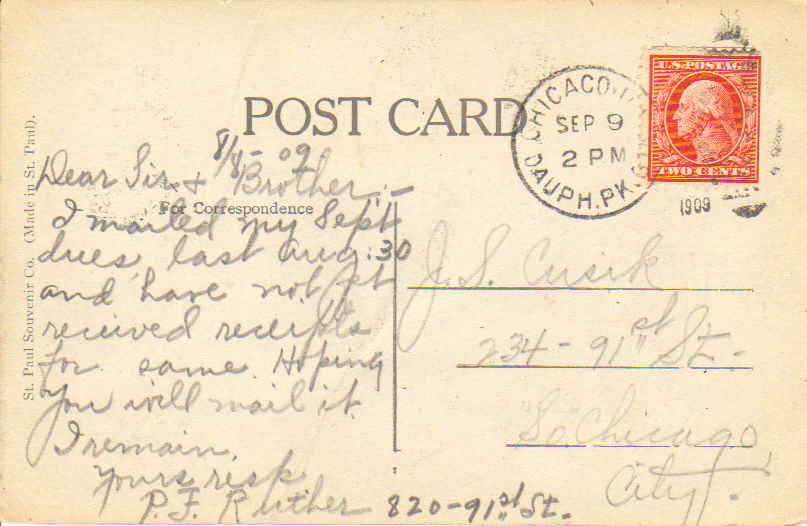 POST CARD
For Correspondence
St. Paul Souvenir Co. (Made in St. Paul).
CHICAGO, ILL.
SEP 9
2 PM
DAUPH. PK. STA
1909
U.S. POSTAGE
TWO CENTS
8/8-09
Dear Sir & Brother,-
I mailed my Sept
dues, last Aug: 30
and have not yt
received receipts
for same. Hoping
You will mail it
I remain,
yours resp.
P. F. Ruther 820-91st St.
J. S. Cusik
234-91st St.-
So Chicago,
City.